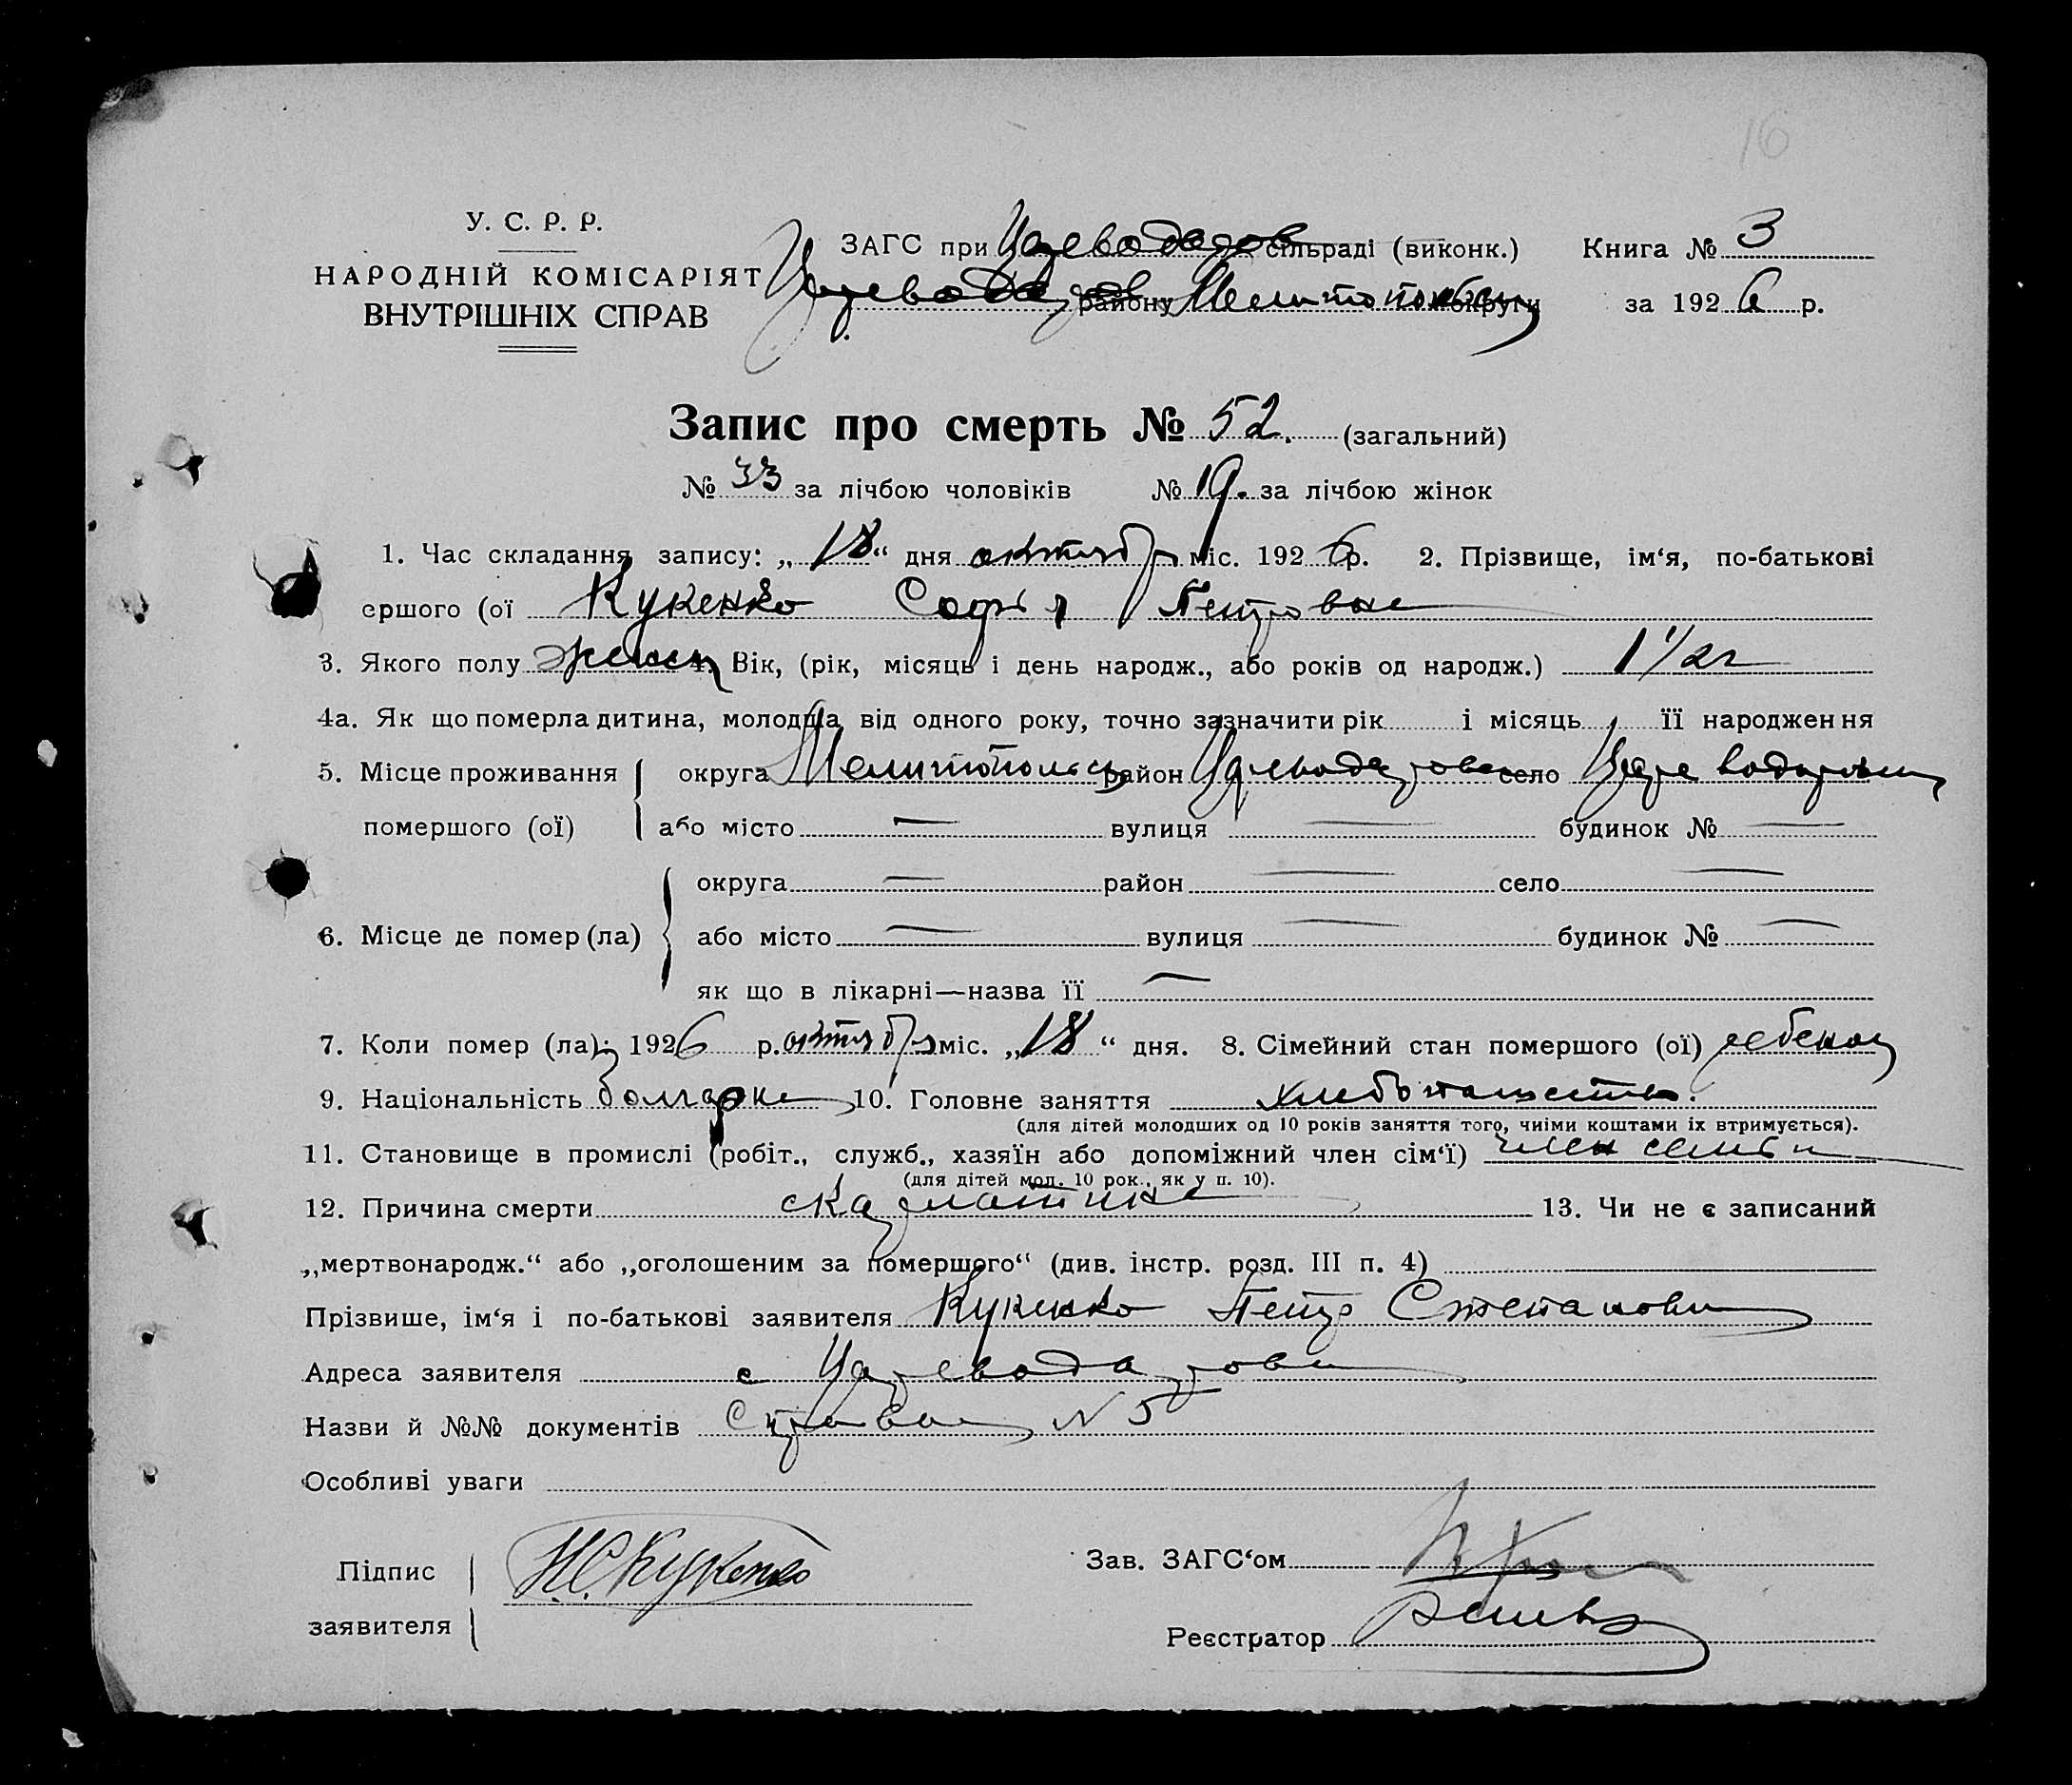 16
У. С. Р. Р.
НАРОДНІЙ КОМІСАРІЯТ
ВНУТРІШНІХ СПРАВ
ЗАГС при Цареводаров сільраді (виконк.) Книга № 3
Цареводаров району Мелитопольск округи за 1926 р.
Запис про смерть № 52. (загальний)
№ 33 за лічбою чоловіків № 19. за лічбою жінок
1. Час складання запису: „18“ дня октября міс. 1926 р. 2. Прізвище, ім‘я, по-батькові
ершого (ої Кукенко Софія Петровна
3. Якого полу женск 4. Вік, (рік, місяць і день народж., або років од народж.) 1 1/2 г
4а. Як що померла дитина, молодша від одного року, точно зазначити рік і місяць її народження
5. Місце проживання округа Мелитопольск район Цареводаровск село Цареводаровка
помершого (ої) або місто — вулиця — будинок № —
округа — район — село —
6. Місце де помер (ла) або місто — вулиця — будинок № —
як що в лікарні—назва її —
7. Коли помер (ла): 1926 р. октября міс. „18“ дня. 8. Сімейний стан помершого (ої) ребенок
9. Національність болгарка 10. Головне заняття хлебопашество.
(для дітей молодших од 10 років заняття того, чиїми коштами їх втримується).
11. Становище в промислі (робіт., служб., хазяїн або допоміжний член сім‘ї) член семьи
(для дітей мол. 10 рок., як у п. 10).
12. Причина смерти скарлатина 13. Чи не є записаний
„мертвонародж.“ або „оголошеним за помершого“ (див. інстр. розд. III п. 4)
Прізвише, ім‘я і по-батькові заявителя Кукенко Петр Степанович
Адреса заявителя с Цареводаровка
Назви й №№ документів Справка N 5
Особливі уваги
Підпис заявителя Кукенко
Зав. ЗАГС‘ом
Реєстратор